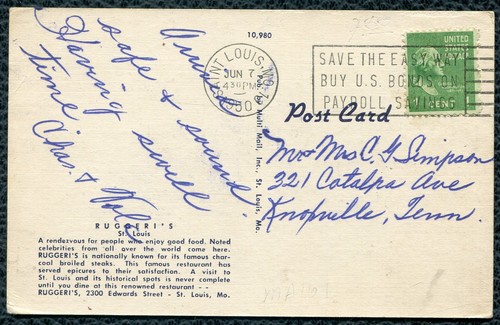 10,980
Arrived
safe & sound.
Having swell
time
Chas. &
RUGGERI'S
St. Louis
A rendezvous for people who enjoy good food. Noted
celebrities from all over the world come here.
RUGGERI'S is nationally known for its famous char-
coal broiled steaks. This famous restaurant has
served epicures to their satisfaction. A visit to
St. Louis and its historical spots is never complete
until you dine at this renowned restaurant - -
RUGGERI'S, 2300 Edwards Street - St. Louis, Mo.
Multi Mail, Inc., St. Louis, Mo.
SAINT LOUIS, MO.
JUN 7
4 30 PM
1950
SAVE THE EASY WAY
BUY U.S. BONDS ON
PAYROLL SAVINGS
UNITED
STATES
Post Card
Mr & Mrs C G Simpson
321 Catalpa Ave
Knoxville, Tenn.